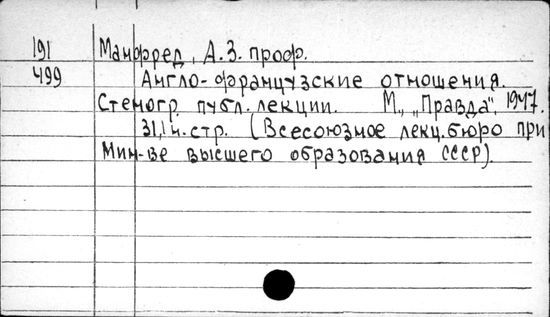 191 Манфред, А.З. проф.
499 Англо-французские отношения.
Стеногр. публ. лекции. М., "Правда", 1947.
31,1 н. стр. (Всесоюзное лекц. бюро при
Мин-ве высшего образования СССР).